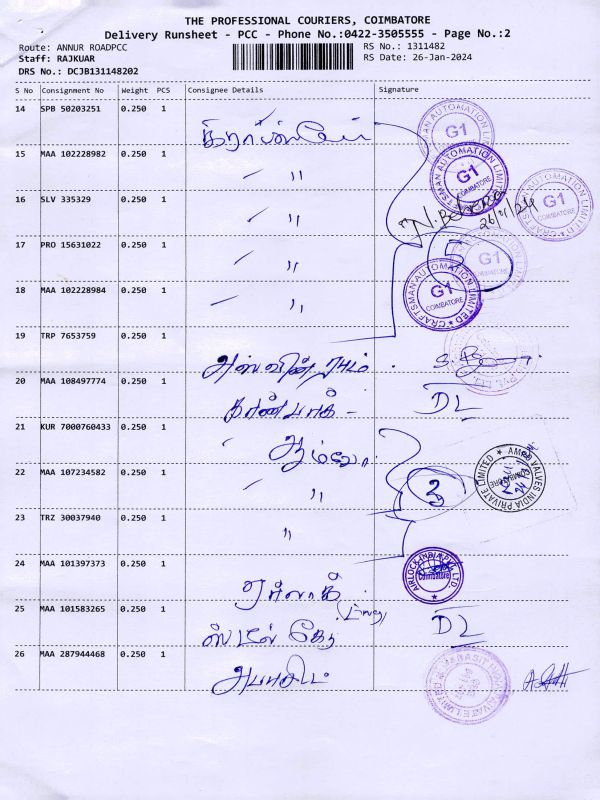 THE PROFESSIONAL COURIERS, COIMBATORE
Delivery Runsheet - PCC - Phone No.:0422-3505555 - Page No.:2
Route: ANNUR ROADPCC
RS No.: 1311482
Staff: RAJKUAR
RS Date: 26-Jan-2024
DRS No.: DCJB131148202
S No Consignment No Weight PCS Consignee Details Signature
14 SPB 50203251 0.250 1
கிராப்ட்ஸ்மேன்
CRAFTSMAN AUTOMATION LIMITED G1
15 MAA 102228982 0.250 1 〃
CRAFTSMAN AUTOMATION LIMITED G1 COIMBATORE
16 SLV 335329 0.250 1 〃
CRAFTSMAN AUTOMATION LIMITED G1 COIMBATORE
26/1/24
17 PRO 15631022 0.250 1 〃
5
G1 COIMBATORE
18 MAA 102228984 0.250 1 〃
CRAFTSMAN AUTOMATION LIMITED G1 COIMBATORE
19 TRP 7653759 0.250 1
20 MAA 108497774 0.250 1
DL
21 KUR 7000760433 0.250 1
22 MAA 107234582 0.250 1 〃
3
AMPO VALVES INDIA PRIVATE LIMITED COIMBATORE
23 TRZ 30037940 0.250 1 〃
24 MAA 101397373 0.250 1
ஏர்லாக்
AIRLOCK INDIA PVT. LTD. Coimbatore
25 MAA 101583265 0.250 1
DL
26 MAA 287944468 0.250 1